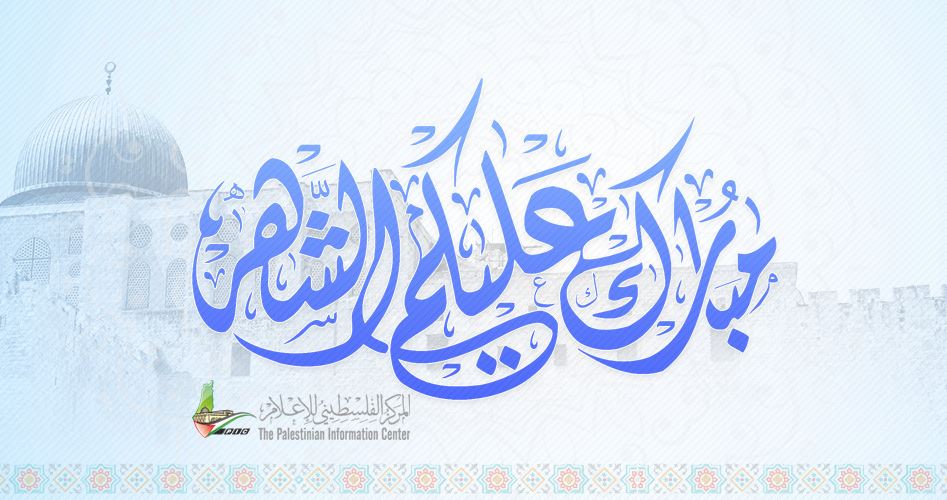 مبارك عليكم الشهر
المركز الفلسطيني للإعلام
The Palestinian Information Center